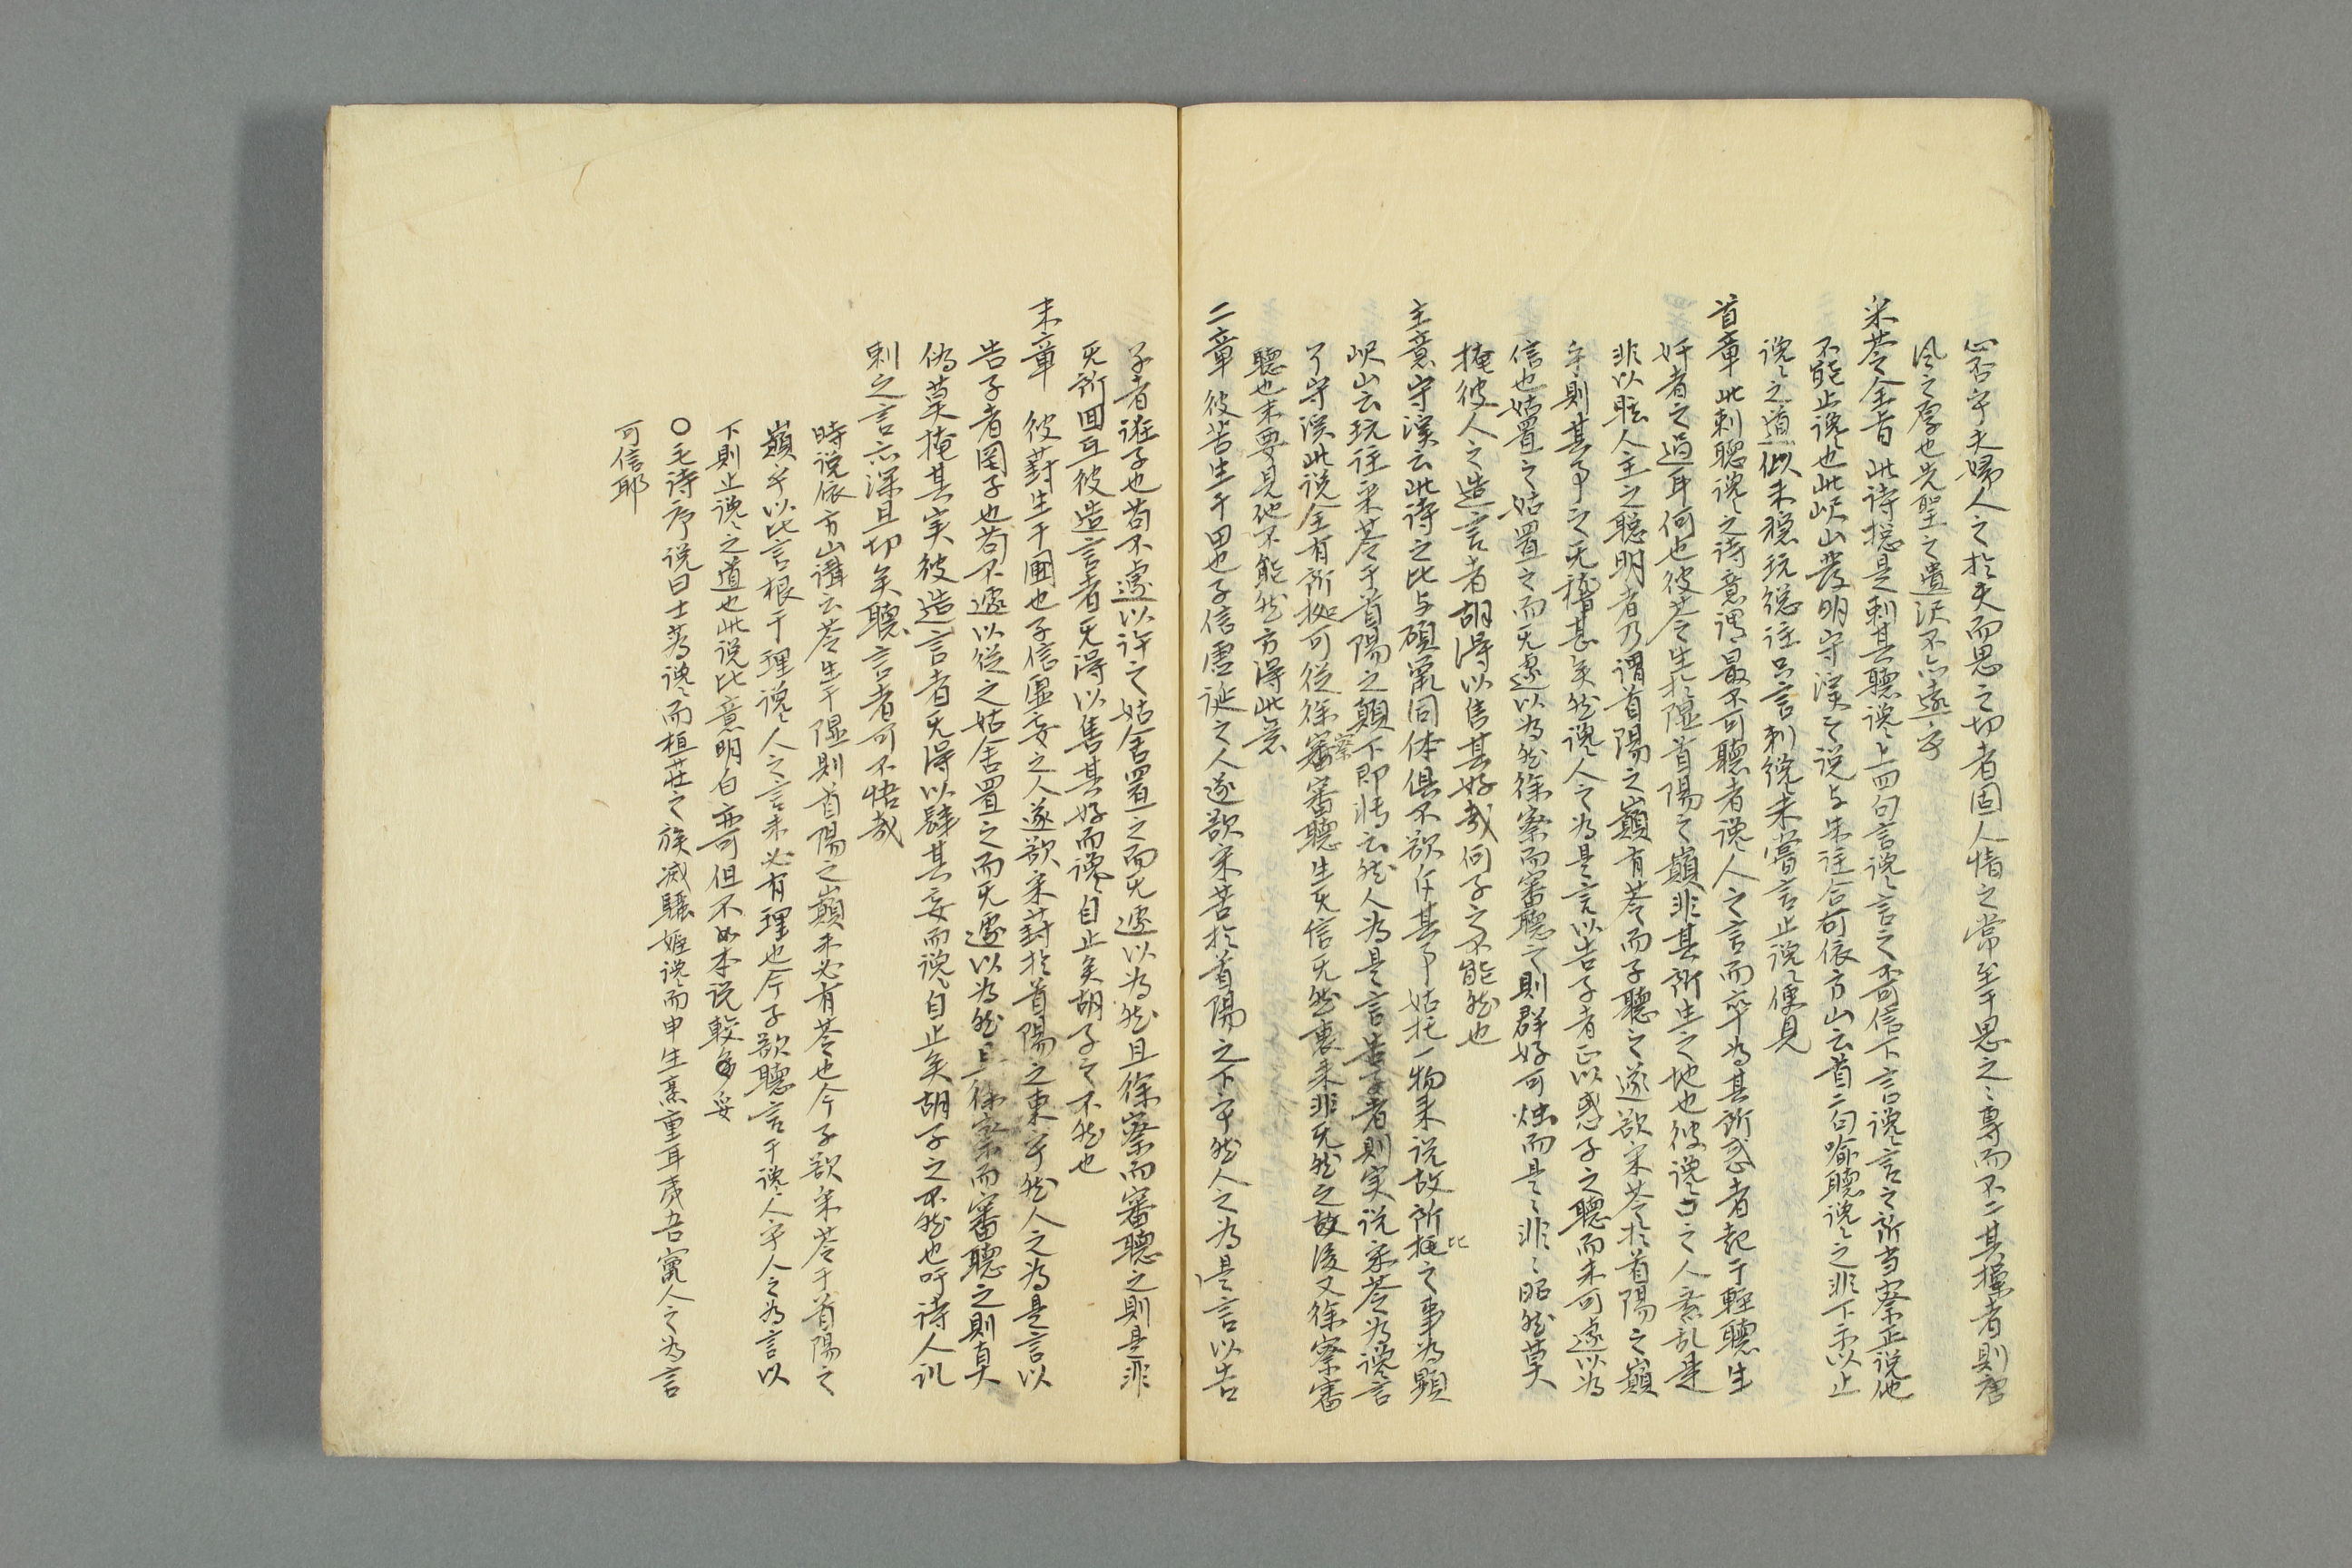 心否乎夫婦人之於夫而思之切者固人情之常至于思之〻専而不二其操者則唐
风之厚也先聖之遺沢不亦遠乎
采苓全旨 此詩揔是刺其聽讒上四句言讒言之不可信下言讒言之所当察正説他
不能止讒也此岷山發明守溪之説与朱注合可依方山云首二句喻聽讒之非下示以止
讒之道似未穏玩總注只言刺讒未嘗言止讒便見
首章 此刺聽讒之詩意謂最不可聽者讒人之言而卒為其所惑者起于輕聽生
奸者之過耳何也彼苓之生於隰首陽之巔非其所生之地也彼讒言之人意乱是
非以眩人主之聡明者乃謂首陽之巔有苓而子聽之遂欲采苓於首陽之巔
乎則其事之无稽甚矣然讒人之為是言以告子者正以惑子之聽而未可遽以為
信也姑置之姑置之而无遽以為然徐察而審聽之則群奸可烛而是〻非〻昭然莫
掩彼人之造言者胡得以售其奸哉何子之不能然也
主意守溪云此詩之比与碩鼠同体俱不欲斥其事姑托一物来说故所托比之事為顕
岷山云玩注采苓于首陽之巔下即将云然人為是言告子者則実说采苓為讒言
了守溪此说全有所拠可從徐察審聽生无信无然裏来非无然之故後又徐察審
聽也末要見他不能然方得此意
二章 彼苦生于田也子信虛诞之人遂欲采苦於首陽之下乎然人之為是言以告
子者誑子也苟不遽以许之姑舍置之而无遽以為然且徐察而審聽之則是非
无所回互彼造言者无得以售其奸而讒自止矣胡子之不然也
末章 彼葑生于圃也子信虛妄之人遂欲采葑於首陽之東乎然人之為是言以
告子者罔子也苟不遽以從之姑舍置之而无遽以為然且徐察而審聽之則真
偽莫掩其実彼造言者无得以肆其妄而讒自止矣胡子之不然也吁詩人讥
刺之言亦深且切矣聽言者可不悟哉
時说依方山講云苓生于隰則首陽之巔未必有苓也今子欲采苓于首陽之
巔乎以比言根于理讒人之言未必有理也今子欲聽言于讒人乎人之為言以
下則止讒之道也此说比意明白亦可但不如本说較多妥
〇毛詩序说曰士蒍讒而桓莊之族滅驪姬讒而申生烹重耳夷吾竄人之為言
可信耶